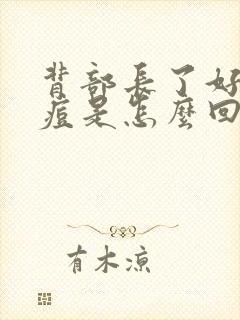 背部長了好
痘是怎麼回
有木涼